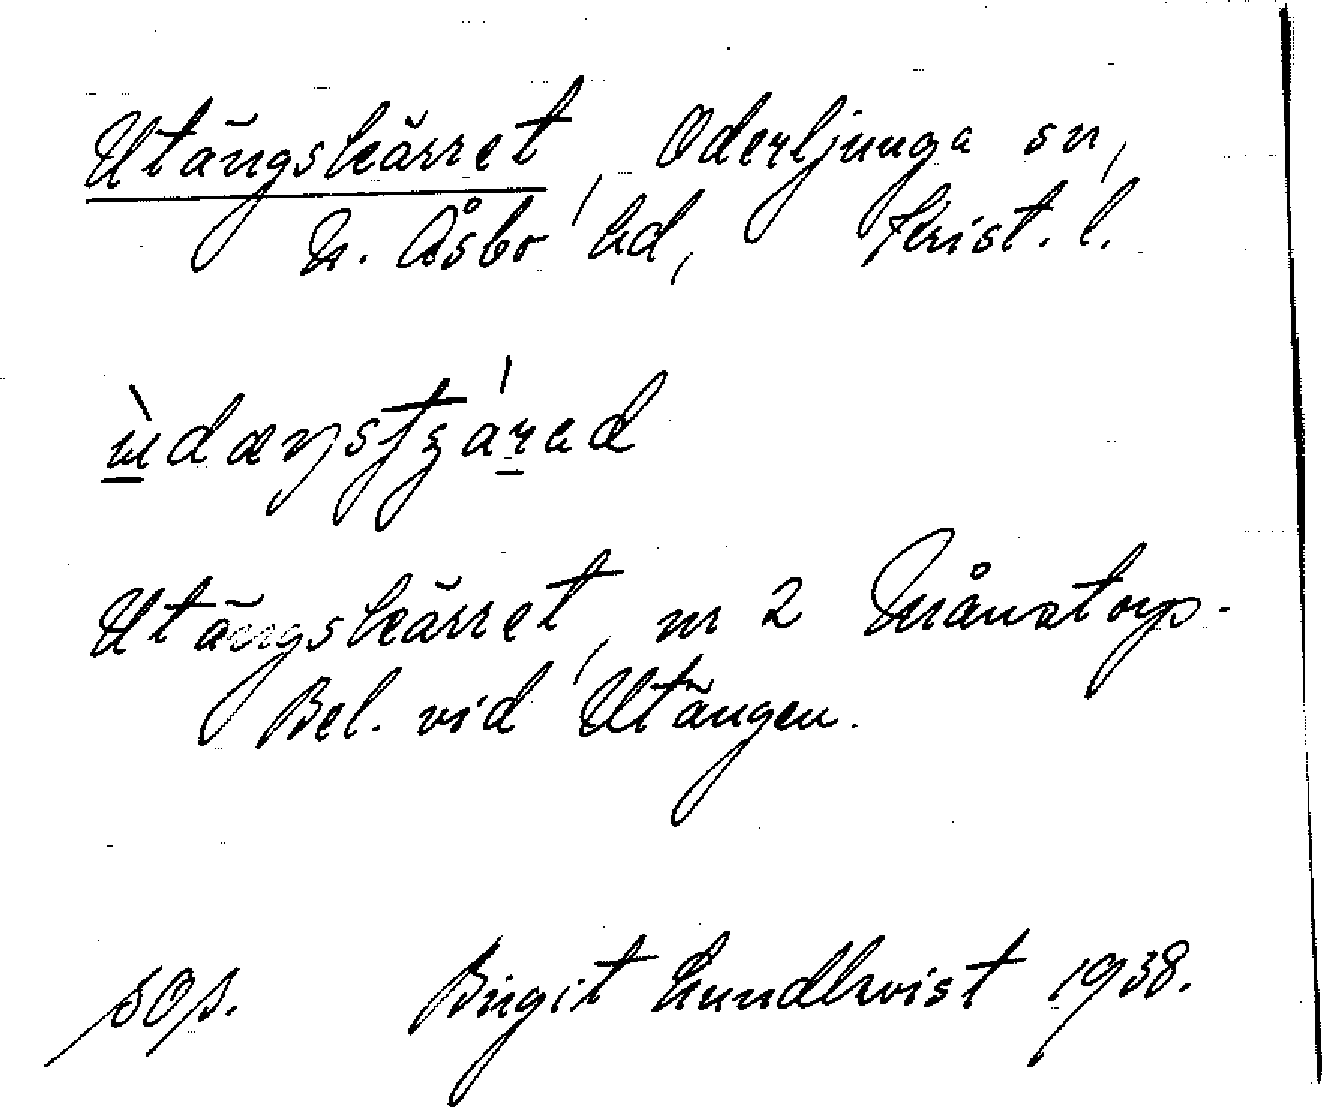 Utängskärret, Oderljunga sn,
N. Åsbo hd, Krist. l.
Utängskärret, nr 2 Månstorp.
Bel. vid Utängen.
Birgit Lundkvist 1938.